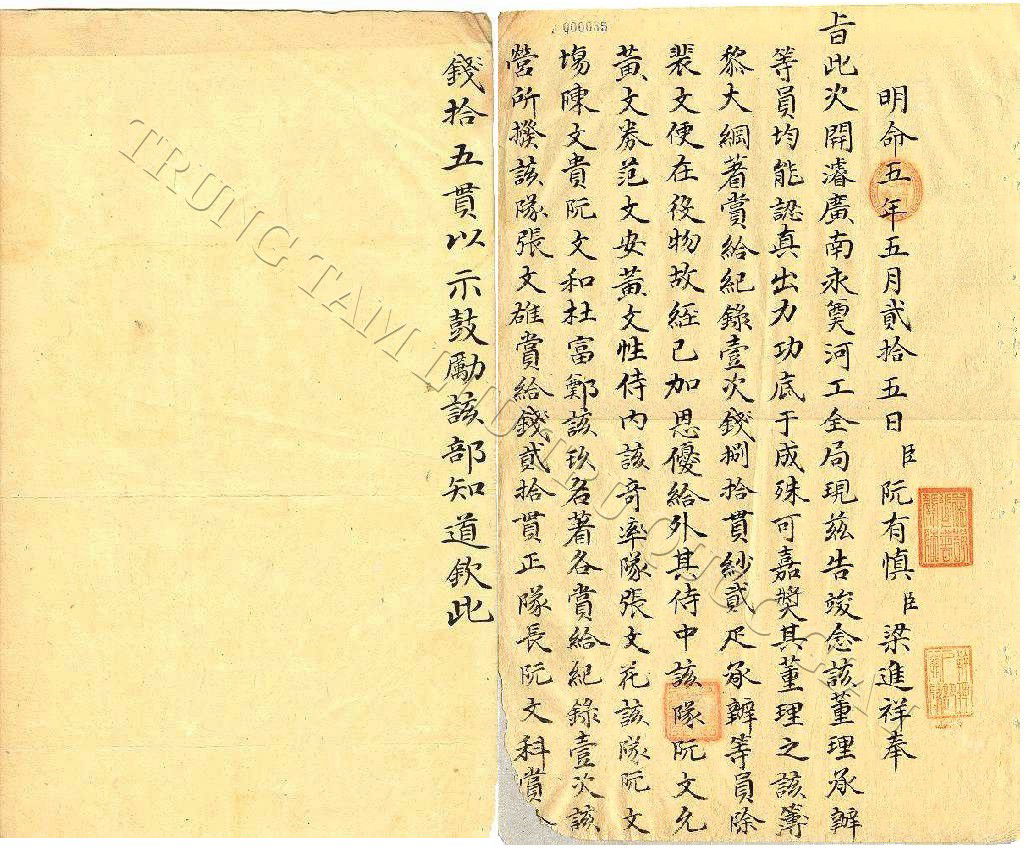 000035
明命五年五月貳拾五日臣阮有慎臣梁進祥奉
旨此次開濬廣南永奠河工全局現茲告竣念該董理承辦
等員均能認真出力功底于成殊可嘉奬其董理之該簿
黎大綱著賞給紀錄壹次錢捌拾貫紗貳疋承辦等員除
裴文便在役物故經已加恩優給外其侍中該隊阮文允
黃文券范文安黃文性侍内該奇率隊張文花該隊阮文
塲陳文貴阮文和杜富鄭該玖名著各賞給紀錄壹次該
營所撥該隊張文雄賞給錢貳拾貫正隊長阮文科賞
錢拾五貫以示鼓勵該部知道欽此
TRUNG TAM LUU TRU QUOC GIA